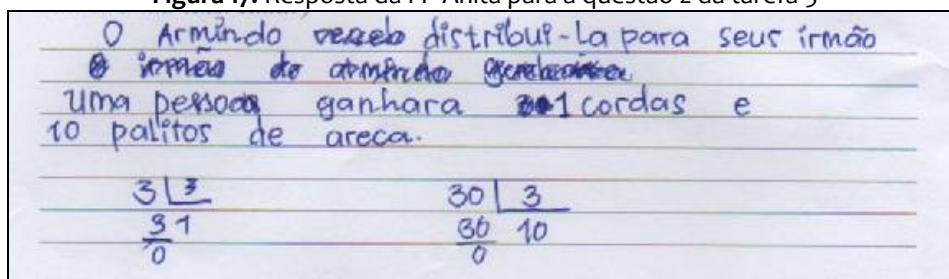 Figura 17. Resposta da PP Anita para a questão 2 da tarefa 5
O Armindo distribuí-La para seus irmão
irmão do armindo
Uma pessoa ganhara 1 cordas e
10 palitos de areca.
3 3 30 3
3 1 30 10
0 0